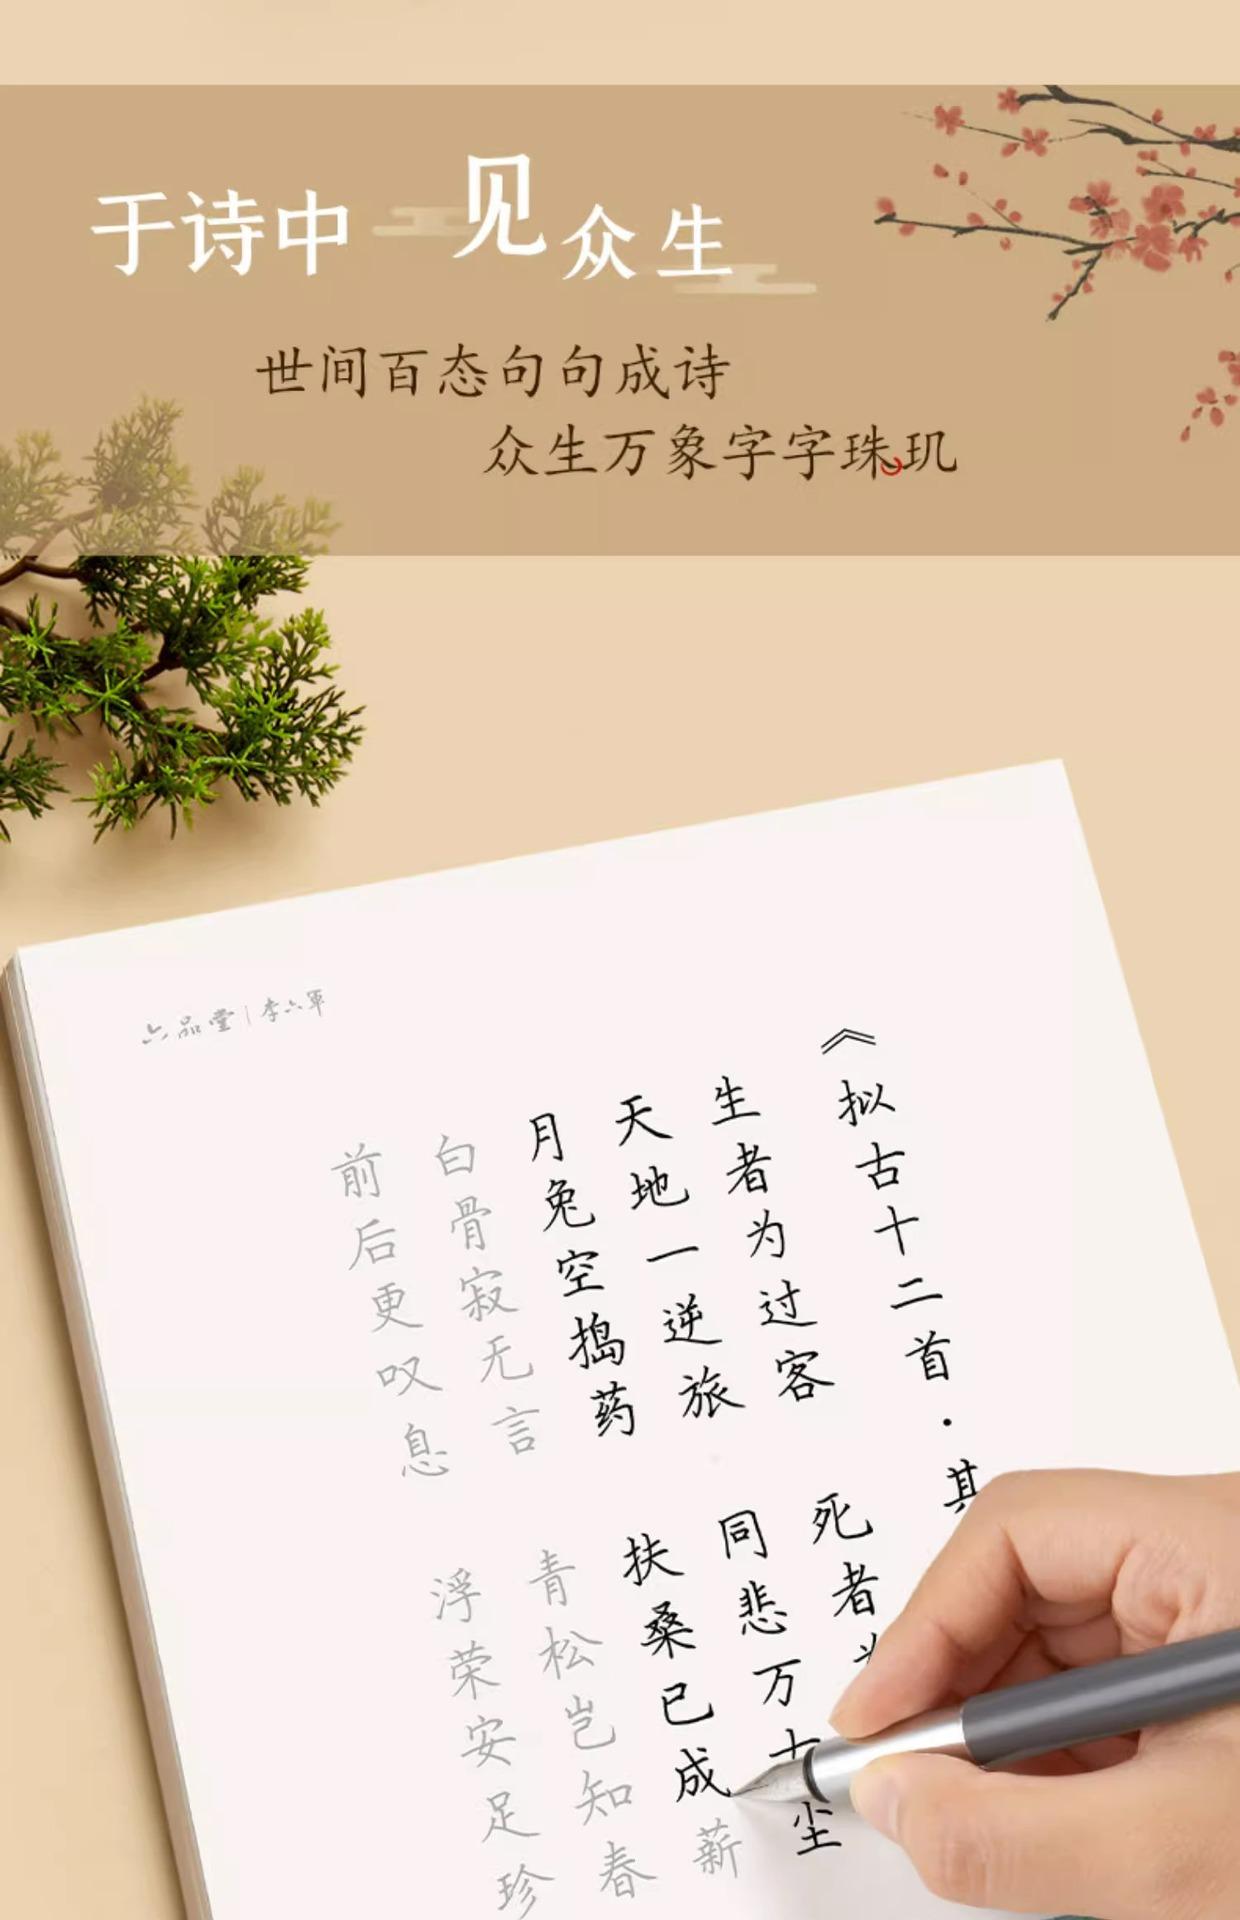 于诗中见众生
世间百态句句成诗
众生万象字字珠玑
六品堂|李六军
《拟古十二首·其
生者为过客
死者为
天地一逆旅
同悲万
尘
月兔空捣药
扶桑已成薪
白骨寂无言
青松岂知春
前后更叹息
浮荣安足珍